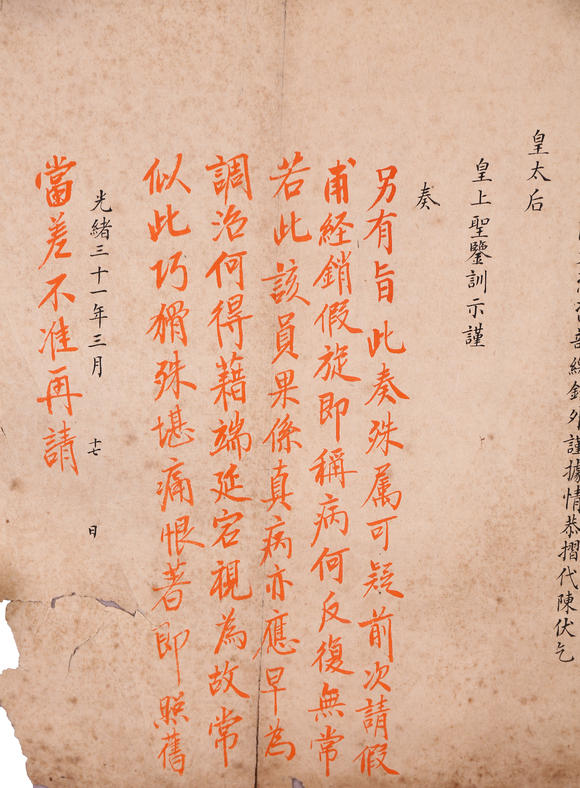 外謹據情恭摺代陳伏乞
皇太后
皇上聖鑒訓示謹
奏
另有旨此奏殊属可疑前次請假
甫經銷假旋即稱病何反復無常
若此該員果係真病亦應早為
調治何得藉端延宕視為故常
似此巧猾殊堪痛恨著即照舊
光緒三十一年三月十七日
當差不准再請